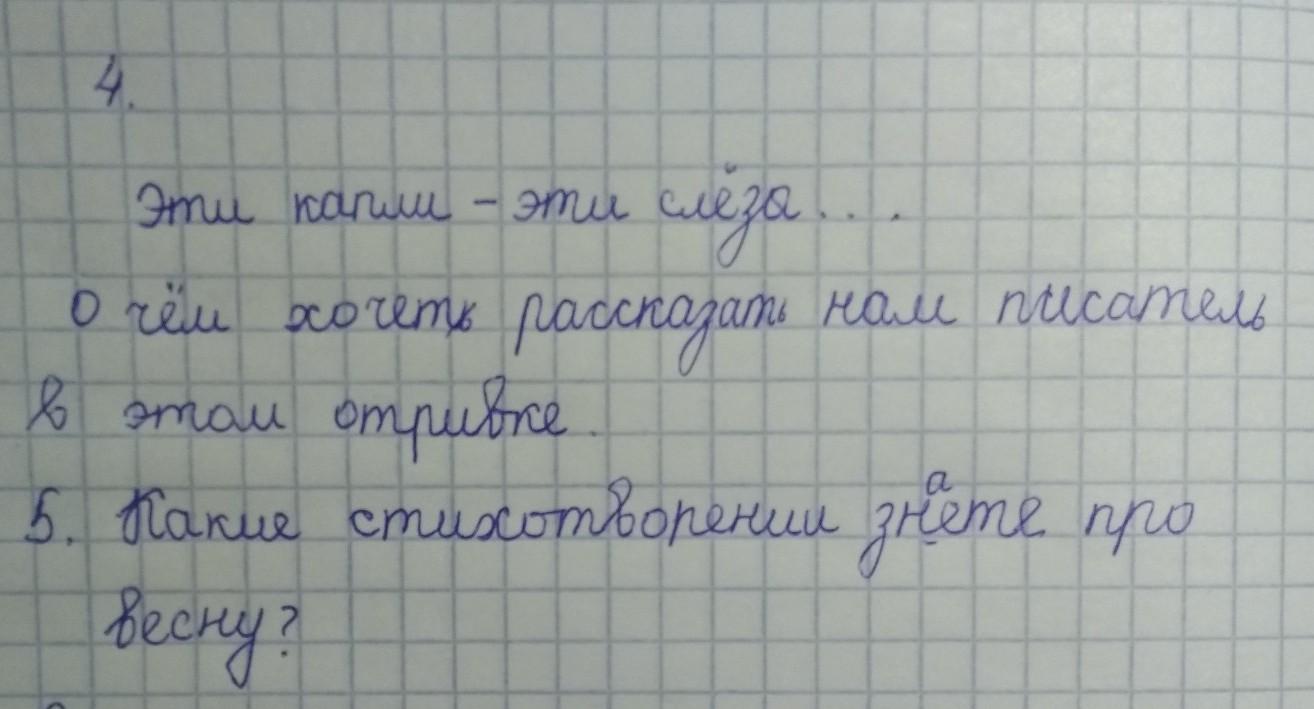 4.
Эти капли - эти слёза....
О чём хочеть рассказать нам писатель
в этом отривке.
5. Какие стихотворении знаете про
весну?